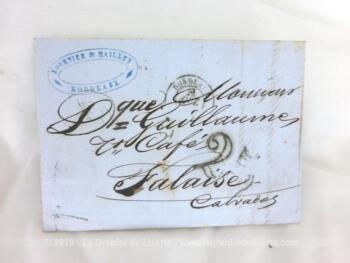 FOURNIER & MAILLET
BORDEAUX
BORDEAUX
Monsieur
Dque Guillaume
Café
Falaise
Calvados
©2019 - Le Grenier de Lisette - www.legrenierdelisette.com